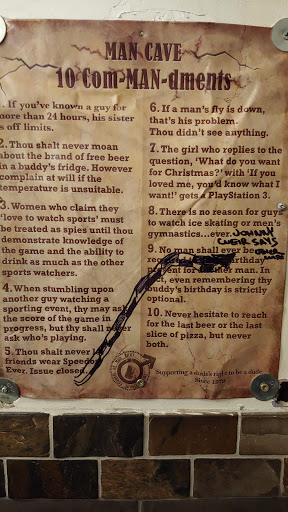 MAN CAVE
10 Com-MAN-dments
1. If you've known a guy for
more than 24 hours, his sister
is off limits.
2. Thou shalt never moan
about the brand of free beer
in a buddy's fridge. However
complain at will if the
temperature is unsuitable.
3. Women who claim they
'love to watch sports' must
be treated as spies until thou
demonstrate knowledge of
the game and the ability to
drink as much as the other
sports watchers.
4. When stumbling upon
another guy watching a
sporting event, thy may ask
the score of the game in
progress, but thy shall never
ask who's playing.
5. Thou shalt never let
friends wear Speedos.
Ever. Issue closed.
6. If a man's fly is down,
that's his problem.
Thou didn't see anything.
7. The girl who replies to the
question, 'What do you want
for Christmas?' with 'If you
loved me, you'd know what I
want!' gets a PlayStation 3.
8. There is no reason for guys
to watch ice skating or men's
gymnastics...ever. JOHNNY
WEIR SAYS
9. No man shall ever be
required birthday
present for another man. In
fact, even remembering thy
buddy's birthday is strictly
optional.
10. Never hesitate to reach
for the last beer or the last
slice of pizza, but never
both.
Supporting a dude's right to be a dude
Since 1979